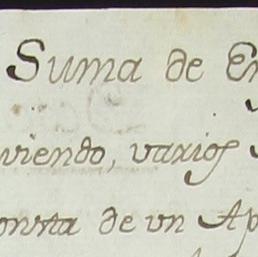 Suma de
viendo, varios
de vn Ap